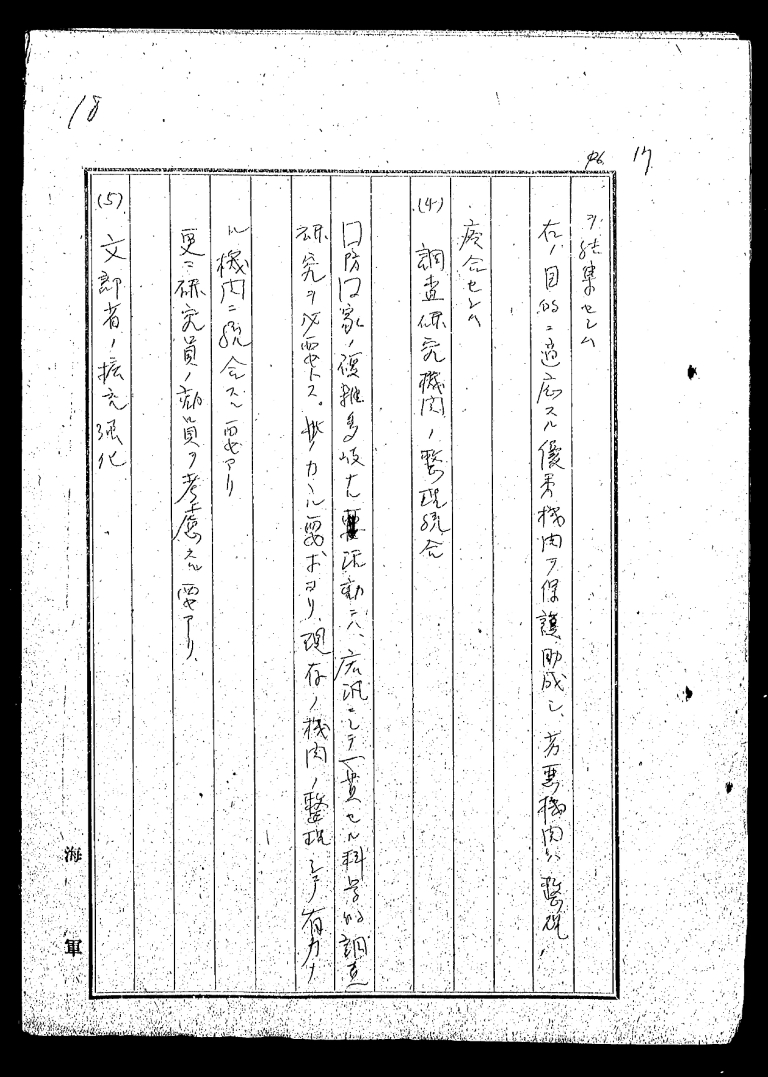 18
17
ヲ結集セシム
右ノ目的ニ適応スル優秀機関ヲ保護助成シ、劣悪機関ハ整理
廃合セシム
(4) 調査研究機関ノ整理統合
国防国家ノ複雑多岐ナル活動ニハ、広汎ニシテ一貫セル科学的調査
研究ヲ必要トス。斯カル要求ヨリ、現存ノ機関ノ整理シテ有力ナ
ル機関ニ統合スル要アリ
更ニ研究員ノ動員ヲ考慮スル要アリ、
(5) 文部省ノ拡充強化
海軍